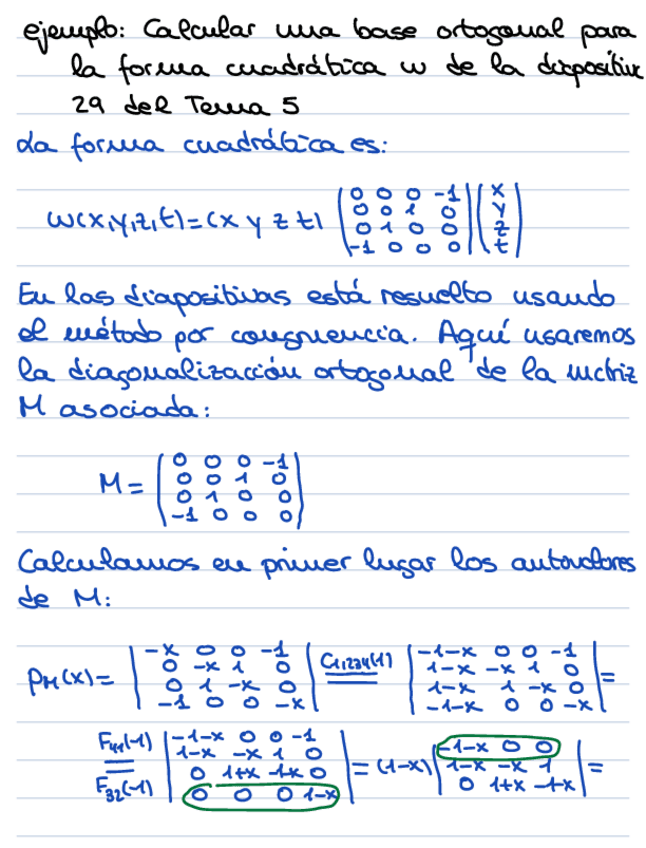 ejemplo: Calcular una base ortogonal para
la forma cuadrática w de la diapositiva
29 del Tema 5
La forma cuadrática es:
w(x,y,z,t)=(x y z t) (0 0 0 -1 | 0 0 1 0 | 0 1 0 0 | -1 0 0 0) (x | y | z | t)
En las diapositivas está resuelto usando
el método por congruencia. Aquí usaremos
la diagonalización ortogonal de la matriz
M asociada:
M= (0 0 0 -1 | 0 0 1 0 | 0 1 0 0 | -1 0 0 0)
Calculamos en primer lugar los autovalores
de M:
p_M(x)= |-x 0 0 -1 | 0 -x 1 0 | 0 1 -x 0 | -1 0 0 -x| C1,234(1) = |-1-x 0 0 -1 | 1-x -x 1 0 | 1-x 1 -x 0 | -1-x 0 0 -x| =
F41(-1) = F32(-1) |-1-x 0 0 -1 | 1-x -x 1 0 | 0 1+x -1-x 0 | 0 0 0 1-x| = (1-x) |-1-x 0 0 | 1-x -x 1 | 0 1+x -1-x| =